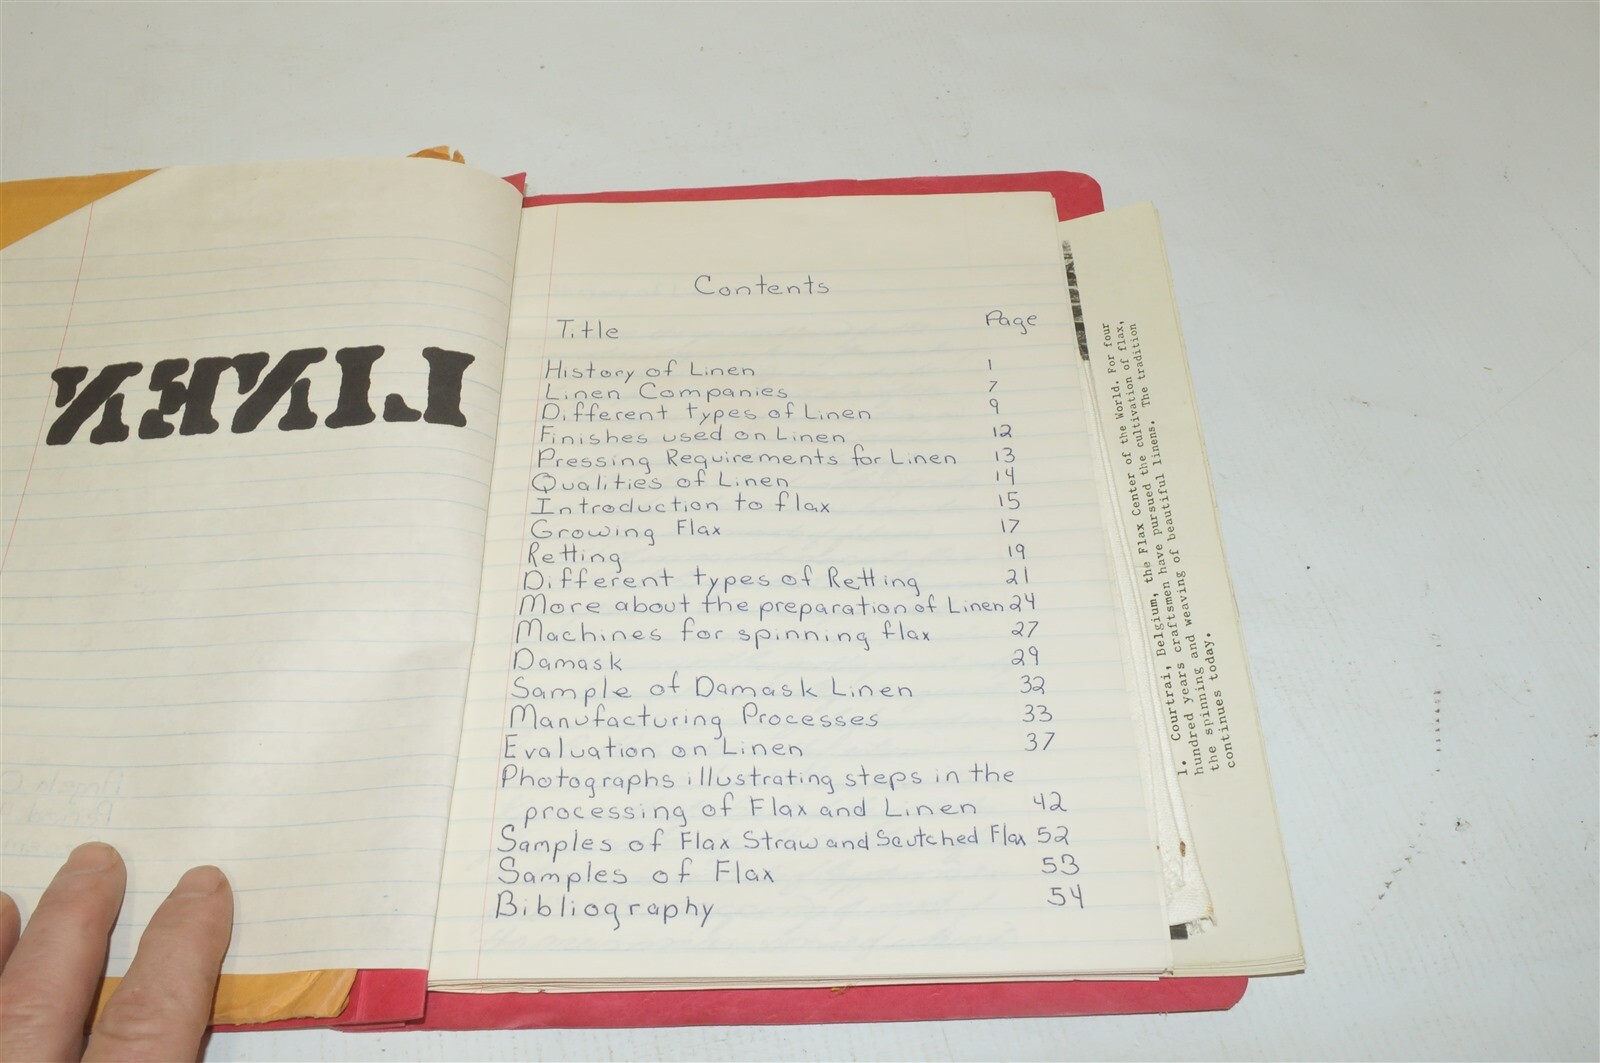 LINEN
Contents
Title Page
History of Linen 1
Linen Companies 7
Different types of Linen 9
Finishes used on Linen 12
Pressing Requirements for Linen 13
Qualities of Linen 14
Introduction to flax 15
Growing Flax 17
Retting 19
Different types of Retting 21
More about the preparation of Linen 24
Machines for spinning flax 27
Damask 29
Sample of Damask Linen 32
Manufacturing Processes 33
Evaluation on Linen 37
Photographs illustrating steps in the
processing of Flax and Linen 42
Samples of Flax Straw and Scutched Flax 52
Samples of Flax 53
Bibliography 54
1. Courtrai, Belgium, the Flax Center of the World. For four
hundred years craftsmen have pursued the cultivation of flax,
the spinning and weaving of beautiful linens. The tradition
continues today.